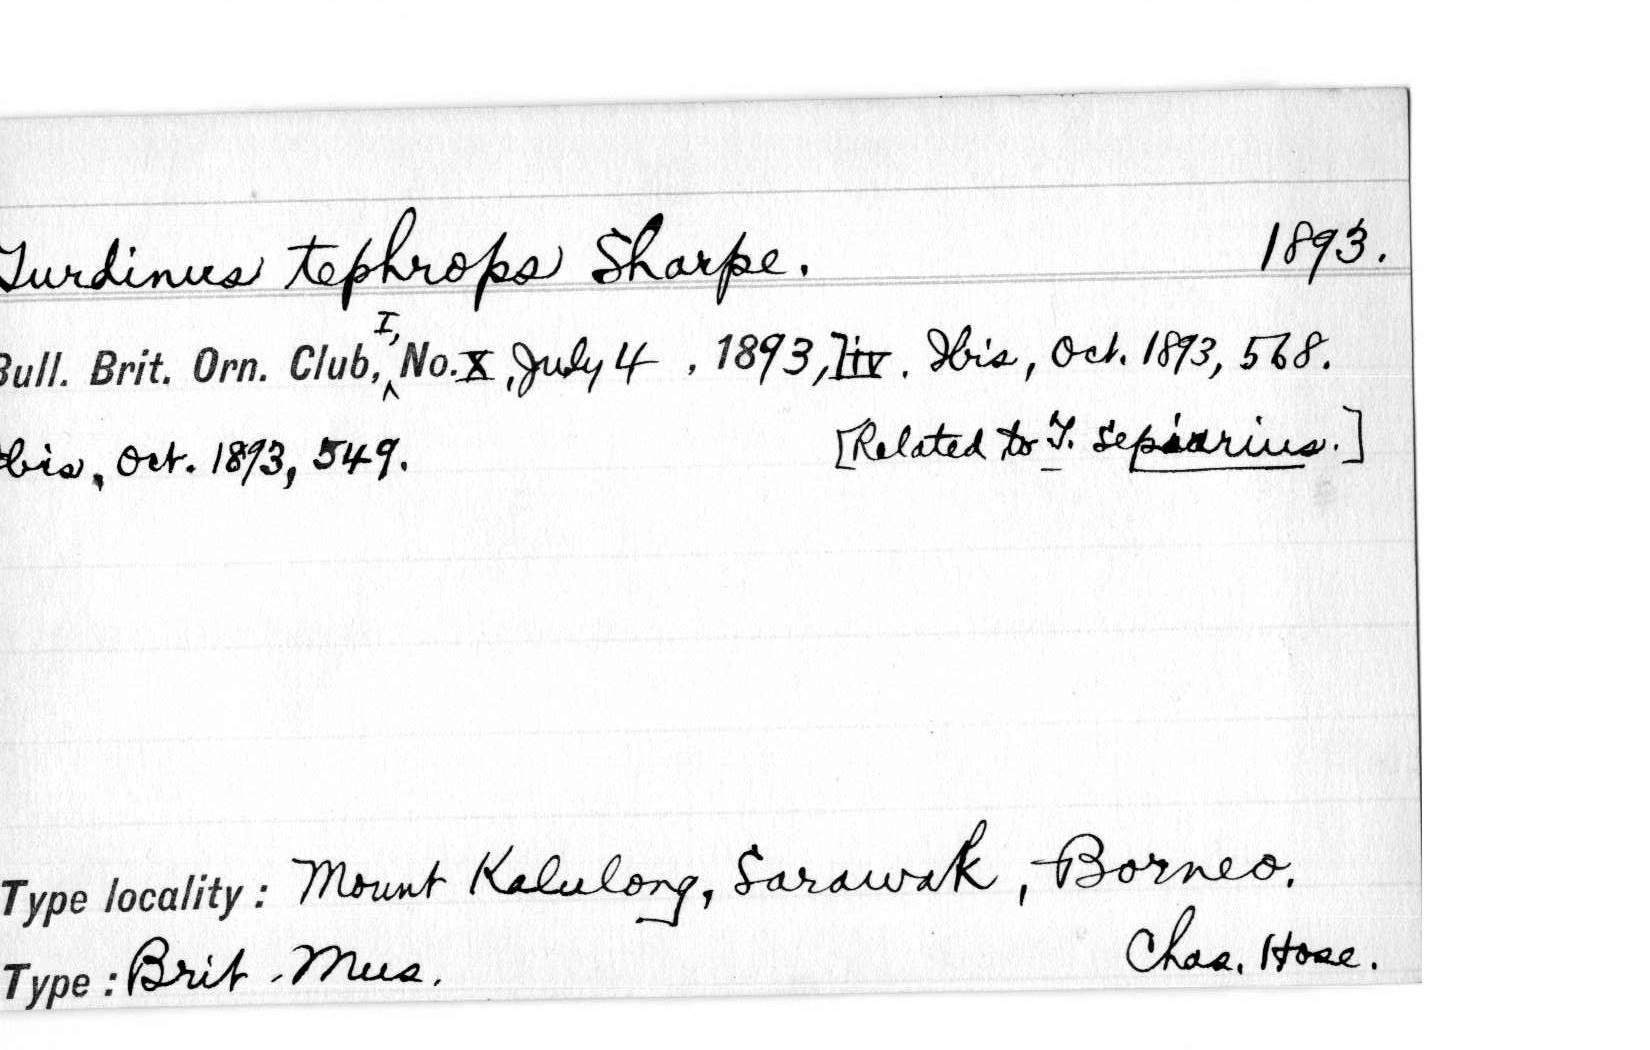 Turdinus tephrops Sharpe. 1893.
Bull. Brit. Orn. Club, I, No. X, July 4, 1893, liv. Ibis, Oct. 1893, 568.
Ibis, Oct. 1893, 549. [Related to T. sepiarius.]
Type locality: Mount Kalulong, Sarawak, Borneo.
Type: Brit. Mus. Chas. Hose.